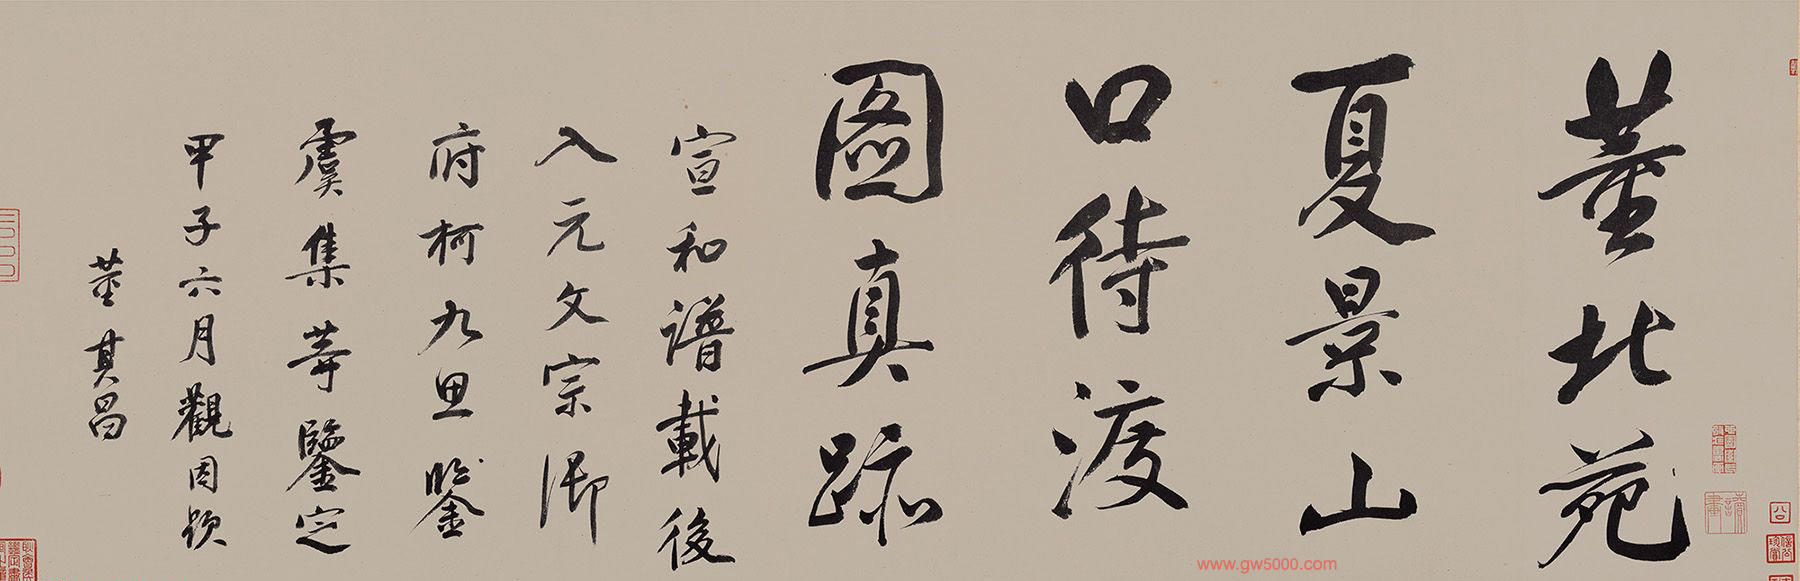 董北苑
夏景山
口待渡
圖真跡
宣和譜載後
入元文宗御
府柯九思鑒
虞集等鑒定
甲子六月觀因題
董其昌
www.gw5000.com